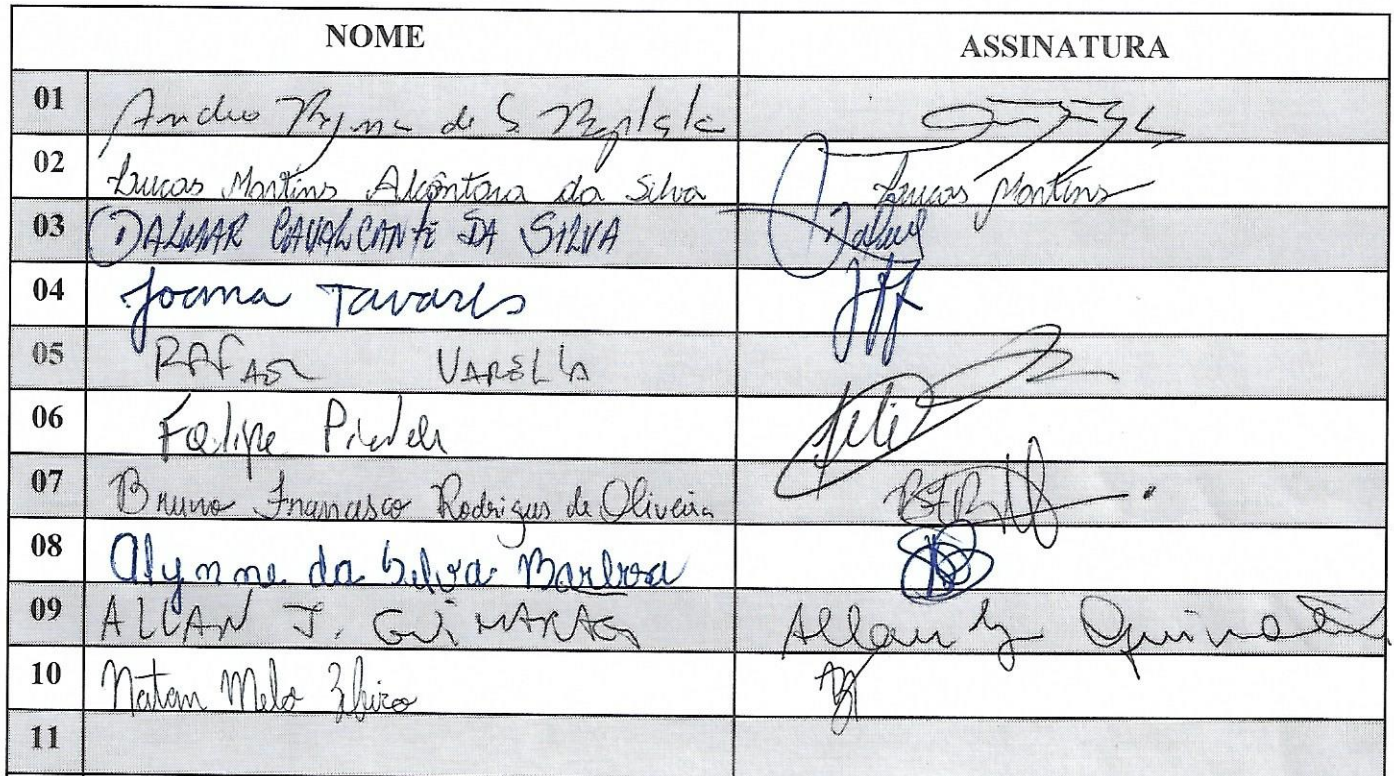 NOME ASSINATURA
01 Andre de S.
02 Lucas Martins Alcântara da Silva Lucas Martins
03 DALMAR CAVALCANTE DA SILVA
04 Joana Tavares
05 RAFAEL VARELLA
06 Felipe
07 Bruno Francisco Rodrigues de Oliveira
08 Alynne da Silva Barbosa
09 ALLAN J. GUIMARAES Allan
10 Natan Melo
11